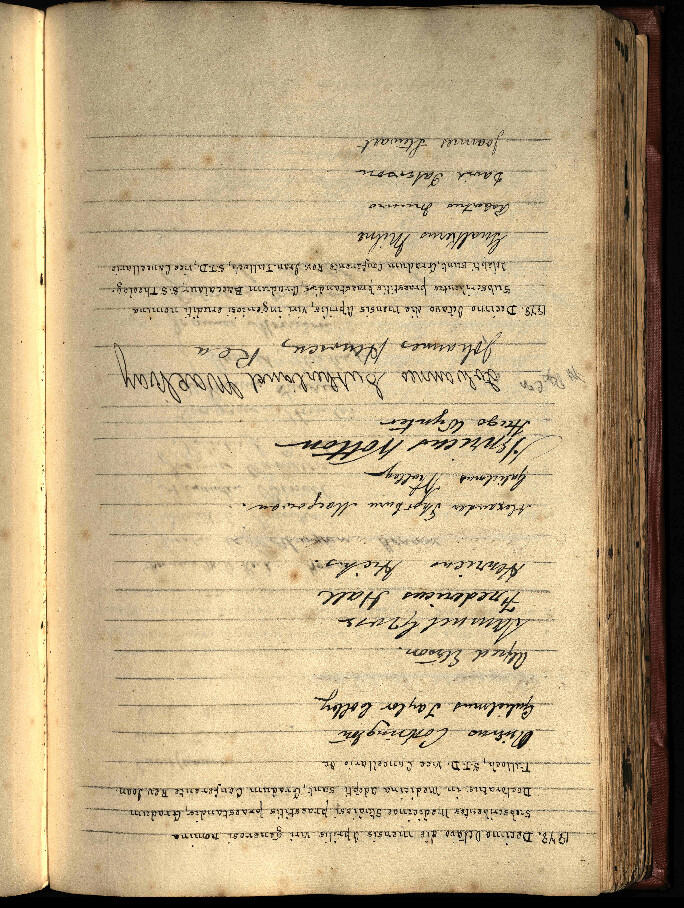 1878. Decimo Octavo die mensis Aprilis viri generosi nomina
Subscribentes Medicinae Studiosi praestitis praestandis, Gradum
Doctoratus in Medicina adepti sunt, Gradum Conferente Rev. Joan.
Tulloch, S.T.D. Vice Cancellario &c
Codrington
Gulielmus Taylor Colby
Alfred Elsdon.
Samuel Gross
Fredericus Hall
Henricus Hicks.
Alexander Thorburn Macgowan.
Gulielmus Molloy
Henricus Notton
Hugo Wynter
Johannes Sutherland Mackay
Johannes Henricus Rea
1878. Decimo Octavo die mensis Aprilis, viri ingeniosi eruditi nomina
Subscribentes praestitis praestandis Gradum Baccalaur. S.S. Theolog.
adepti sunt, Gradum Conferente Rev. Joan. Tulloch, S.T.D., Vice Cancellario
Gualterus Milne
Robertus Munro
David Paterson
Joannes Stewart